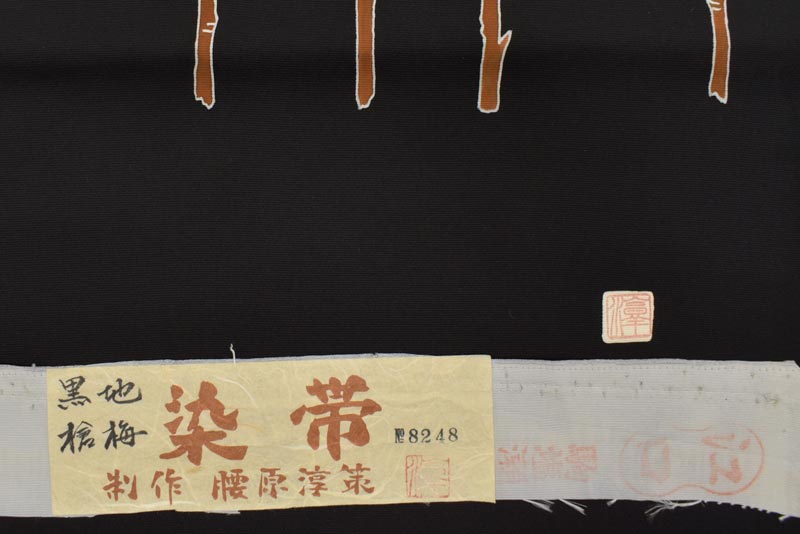 黒地
槍梅
染帯
№8248
制作 腰原淳策
淳
江口